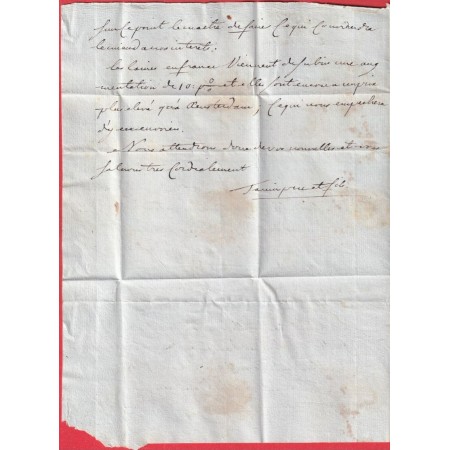 Sur ce point le maitre de faire ce qui Conviendra
le mieux a nos interets;
les laines en france Viennent de Subir une aug
mentation de 10 p% et elles sont encore a un prix
plus elevé qu'a Amsterdam, Ce qui nous empechera
d'en envoyer.
Nous attendrons donc de vos nouvelles et vous
saluons tres Cordialement
pere et fils